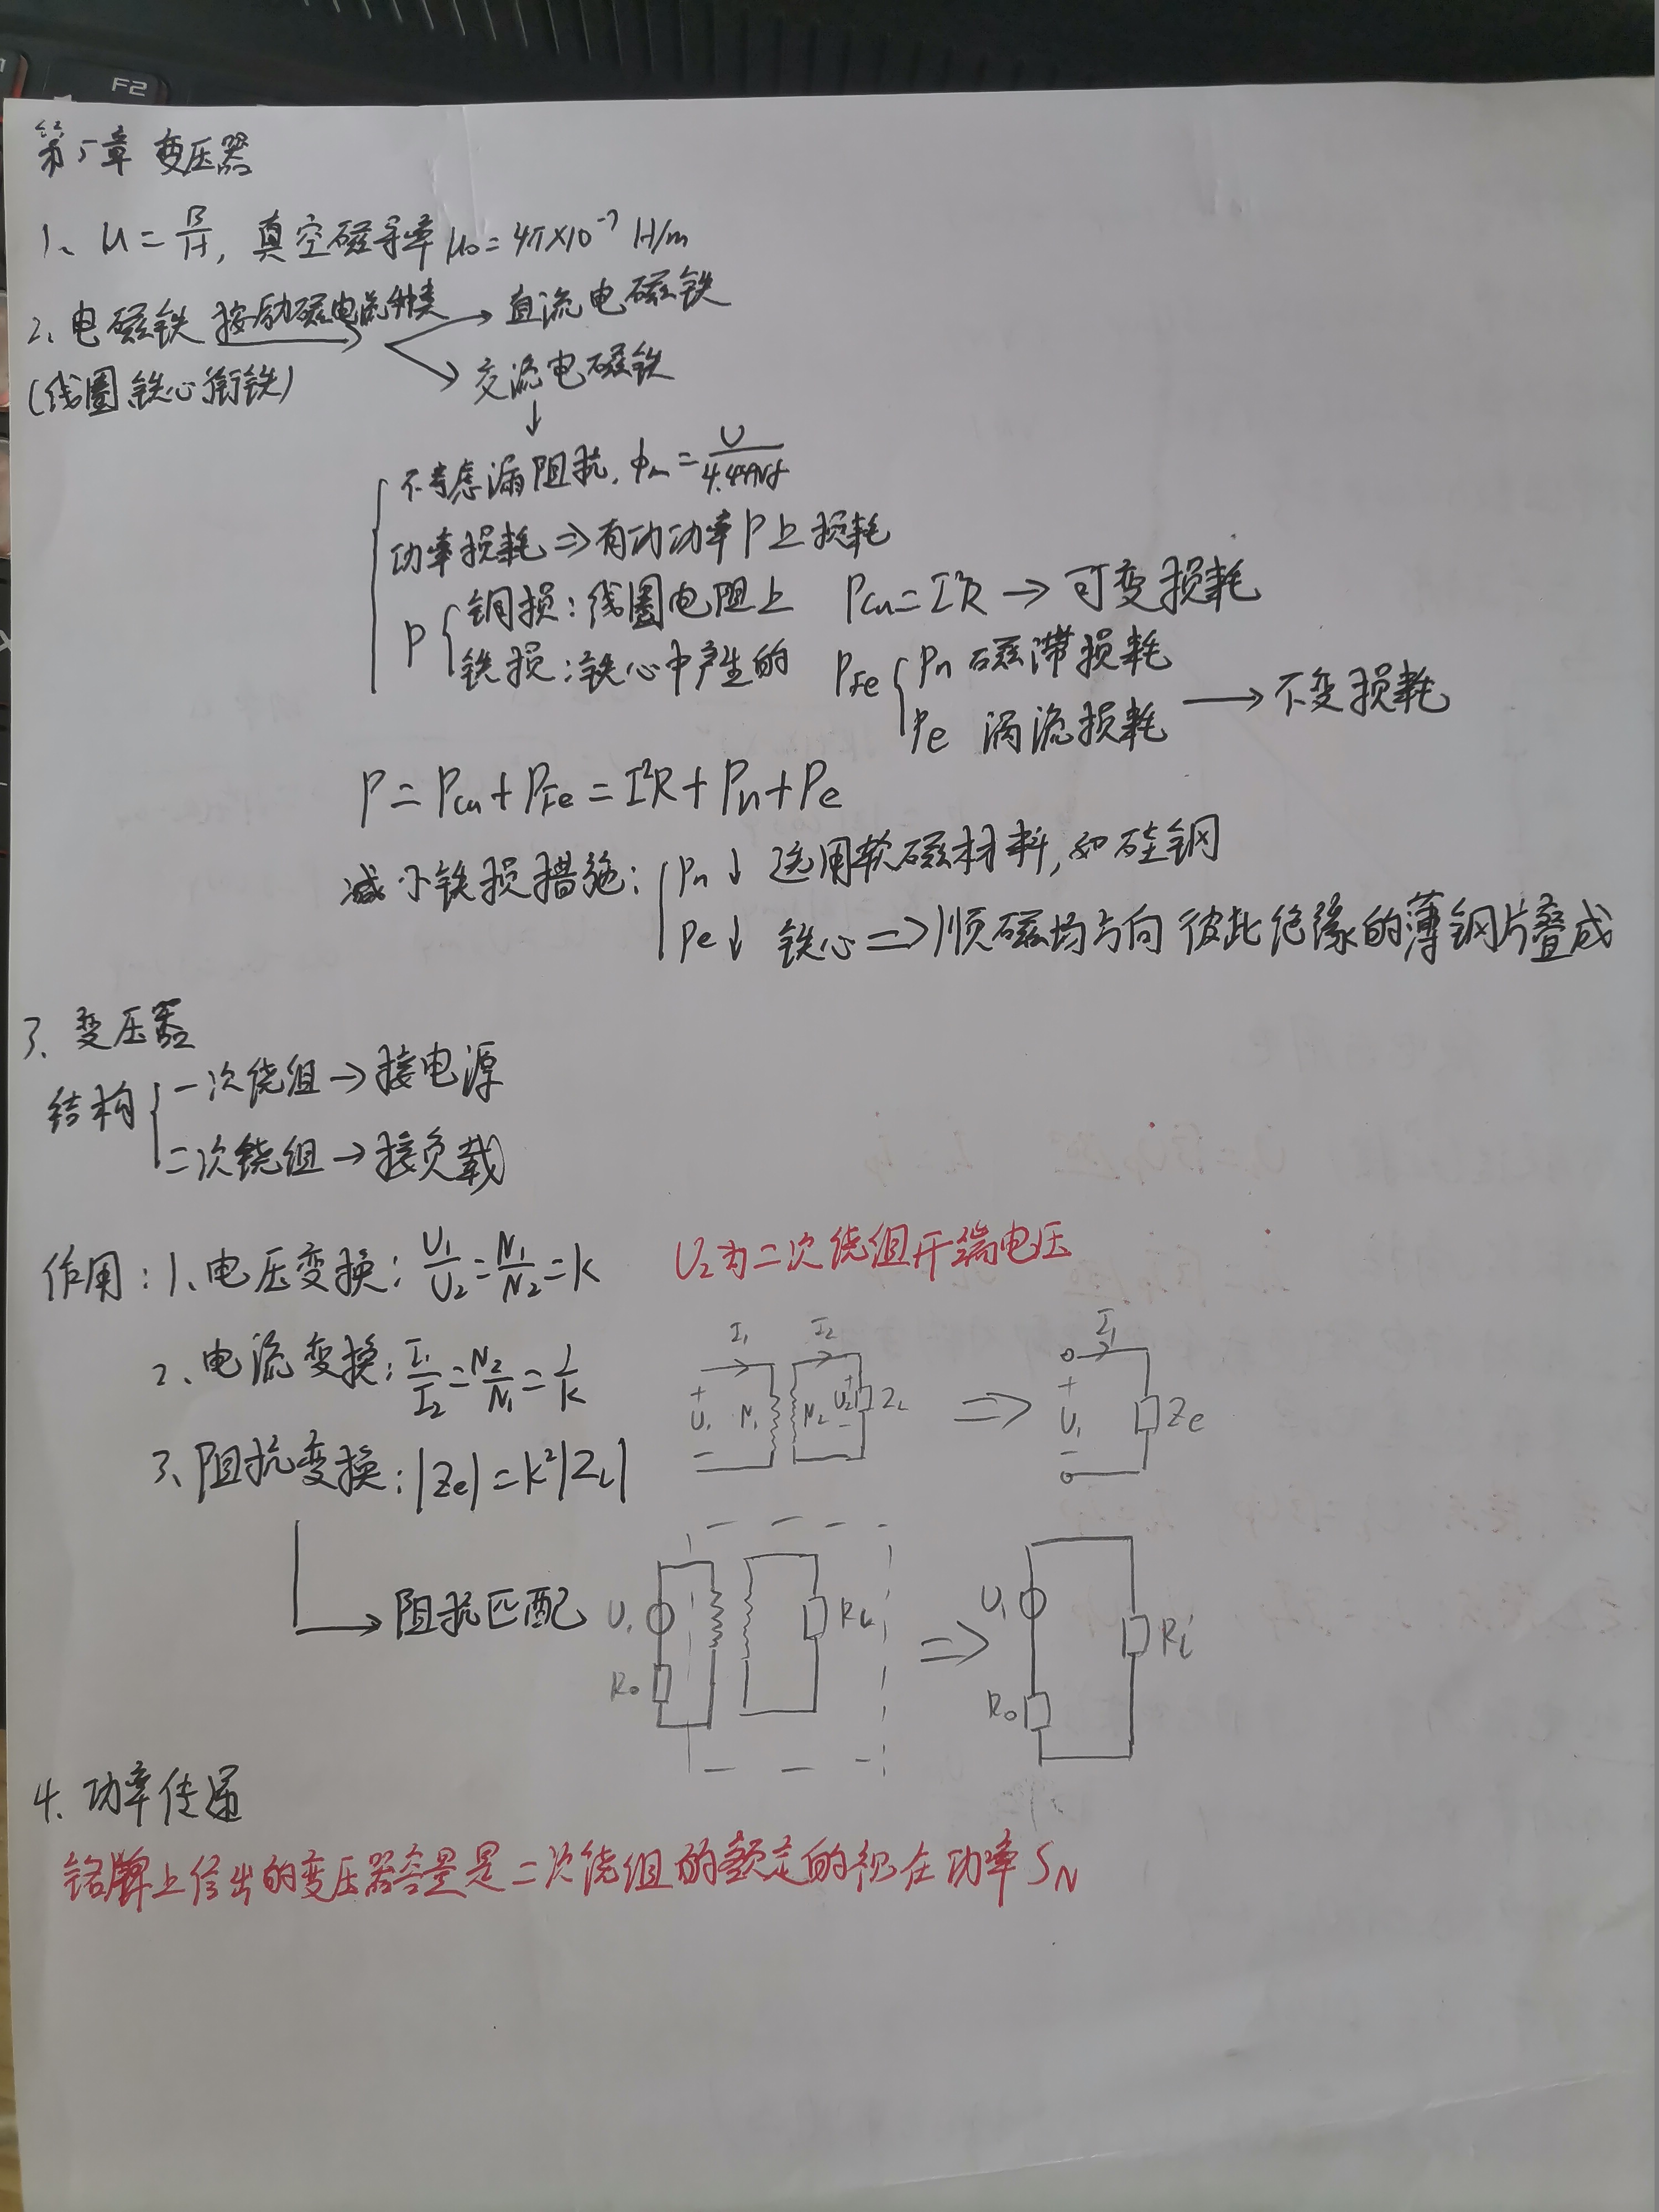 F2
第5章 变压器
1、μ=B/H, 真空磁导率 μ₀=4π×10⁻⁷ H/m
2、电磁铁 按励磁电流种类 → 直流电磁铁
(线圈 铁心 衔铁) → 交流电磁铁
↓
不考虑漏阻抗, Φm=U/4.44Nf
功率损耗⇒有功功率P上损耗
P { 铜损:线圈电阻上 Pcu=I²R → 可变损耗
铁损:铁心中产生的 PFe { Pn 磁滞损耗
Pe 涡流损耗 → 不变损耗
P=Pcu+PFe=I²R+Pn+Pe
减小铁损措施: { Pn↓ 选用软磁材料,如硅钢
Pe↓ 铁心⇒顺磁场方向 彼此绝缘的薄钢片叠成
3、变压器
结构 { 一次绕组→接电源
二次绕组→接负载
作用:1、电压变换: U₁/U₂=N₁/N₂=k U₂为二次绕组开端电压
2、电流变换: I₁/I₂=N₂/N₁=1/k
I₁ I₂ + U₁ - N₁ N₂ + U₂ - ZL ⇒ I₁ + U₁ - Ze
3、阻抗变换: |Ze|=k²|ZL|
→ 阻抗匹配 U₁ R₀ RL ⇒ U₁ R₀ RL'
4、功率传递
铭牌上给出的变压器容量是二次绕组的额定的视在功率 SN